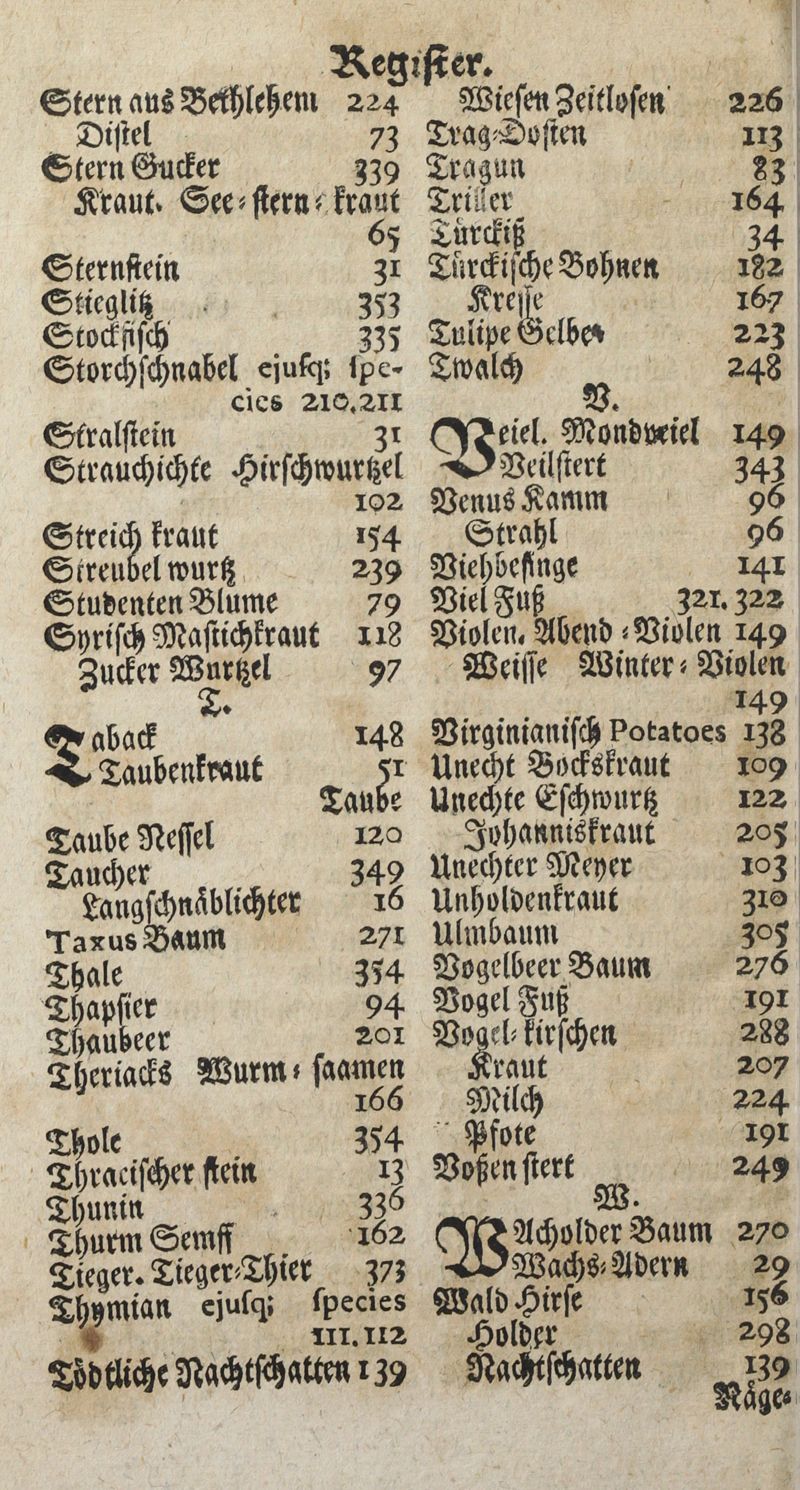 Register.
Stern aus Bethlehem 224
Distel 73
Stern Gucker 339
Kraut. See-stern-kraut
65
Sternstein 31
Stieglitz 353
Stockfisch 335
Storchschnabel ejusq; spe-
cies 210.211
Stralstein 31
Strauchichte Hirschwurtzel
102
Streich kraut 154
Streubel wurtz 239
Studenten Blume 79
Syrisch Mastichkraut 118
Zucker Wurtzel 97
T.
Taback 148
Taubenkraut 51
Taube
Taube Nessel 120
Taucher 349
Langschnäblichter 16
Taxus Baum 271
Thale 354
Thapsier 94
Thaubeer 201
Theriacks Wurm-saamen
166
Thole 354
Thracischer stein 13
Thunin 336
Thurm Semff 162
Tieger. Tieger-Thier 373
Thymian ejusq; species
111.112
Tödtliche Nachtschatten 139
Wiesen Zeitlosen 226
Trag-Dosten 113
Tragun 83
Triller 164
Türckiß 34
Türckische Bohnen 182
Kresse 167
Tulipe Gelbe 223
Twalch 248
V.
Veiel. Mondveiel 149
Veilstert 343
Venus Kamm 96
Strahl 96
Viehbesinge 141
Viel Fuß 321.322
Violen. Abend-Violen 149
Weisse Winter-Violen
149
Virginianisch Potatoes 138
Unecht Bockskraut 109
Unechte Eschwurtz 122
Johanniskraut 205
Unechter Meyer 103
Unholdenkraut 310
Ulmbaum 305
Vogelbeer Baum 276
Vogel Fuß 191
Vogel-kirschen 288
Kraut 207
Milch 224
Pfote 191
Voßen stert 249
W.
WAcholder Baum 270
Wachs-Adern 29
Wald Hirse 156
Holder 298
Nachtschatten 139
Näge-